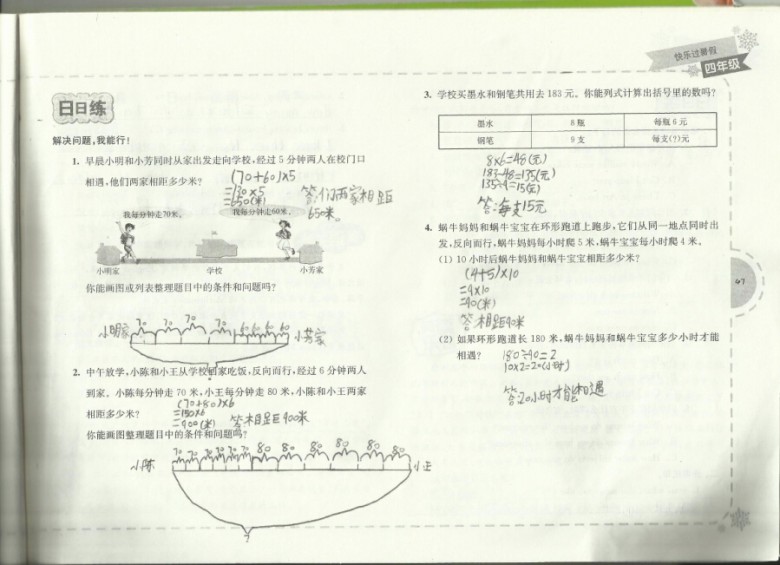 快乐过暑假
四年级
日日练
解决问题,我能行!
1. 早晨小明和小芳同时从家出发走向学校,经过 5 分钟两人在校门口
相遇,他们两家相距多少米?
(70+60)×5
=130×5
=650(米)
答:们两家相距
650米。
我每分钟走70米。
我每分钟走60米。
小明家
学校
小芳家
你能画图或列表整理题目中的条件和问题吗?
小明家
70
70
70
70
70
60
60
60
60
60
小芳家
?
2. 中午放学,小陈和小王从学校回家吃饭,反向而行,经过 6 分钟两人
到家。小陈每分钟走 70 米,小王每分钟走 80 米,小陈和小王两家
相距多少米?
(70+80)×6
=150×6
=900(米)
答:相距900米
你能画图整理题目中的条件和问题吗?
小陈
70
70
70
70
70
70
80
80
80
80
80
80
小王
?
3. 学校买墨水和钢笔共用去 183 元。你能列式计算出括号里的数吗?
墨水
8 瓶
每瓶 6 元
钢笔
9 支
每支(?)元
8×6=48(元)
183-48=135(元)
135÷9=15(元)
答:每支15元
4. 蜗牛妈妈和蜗牛宝宝在环形跑道上跑步,它们从同一地点同时出
发,反向而行,蜗牛妈妈每小时爬 5 米,蜗牛宝宝每小时爬 4 米。
(1) 10 小时后蜗牛妈妈和蜗牛宝宝相距多少米?
(4+5)×10
=9×10
=90(米)
答:相距90米
(2) 如果环形跑道长 180 米,蜗牛妈妈和蜗牛宝宝多少小时才能
相遇?
180÷90=2
10×2=20(小时)
答:20小时才能相遇
47